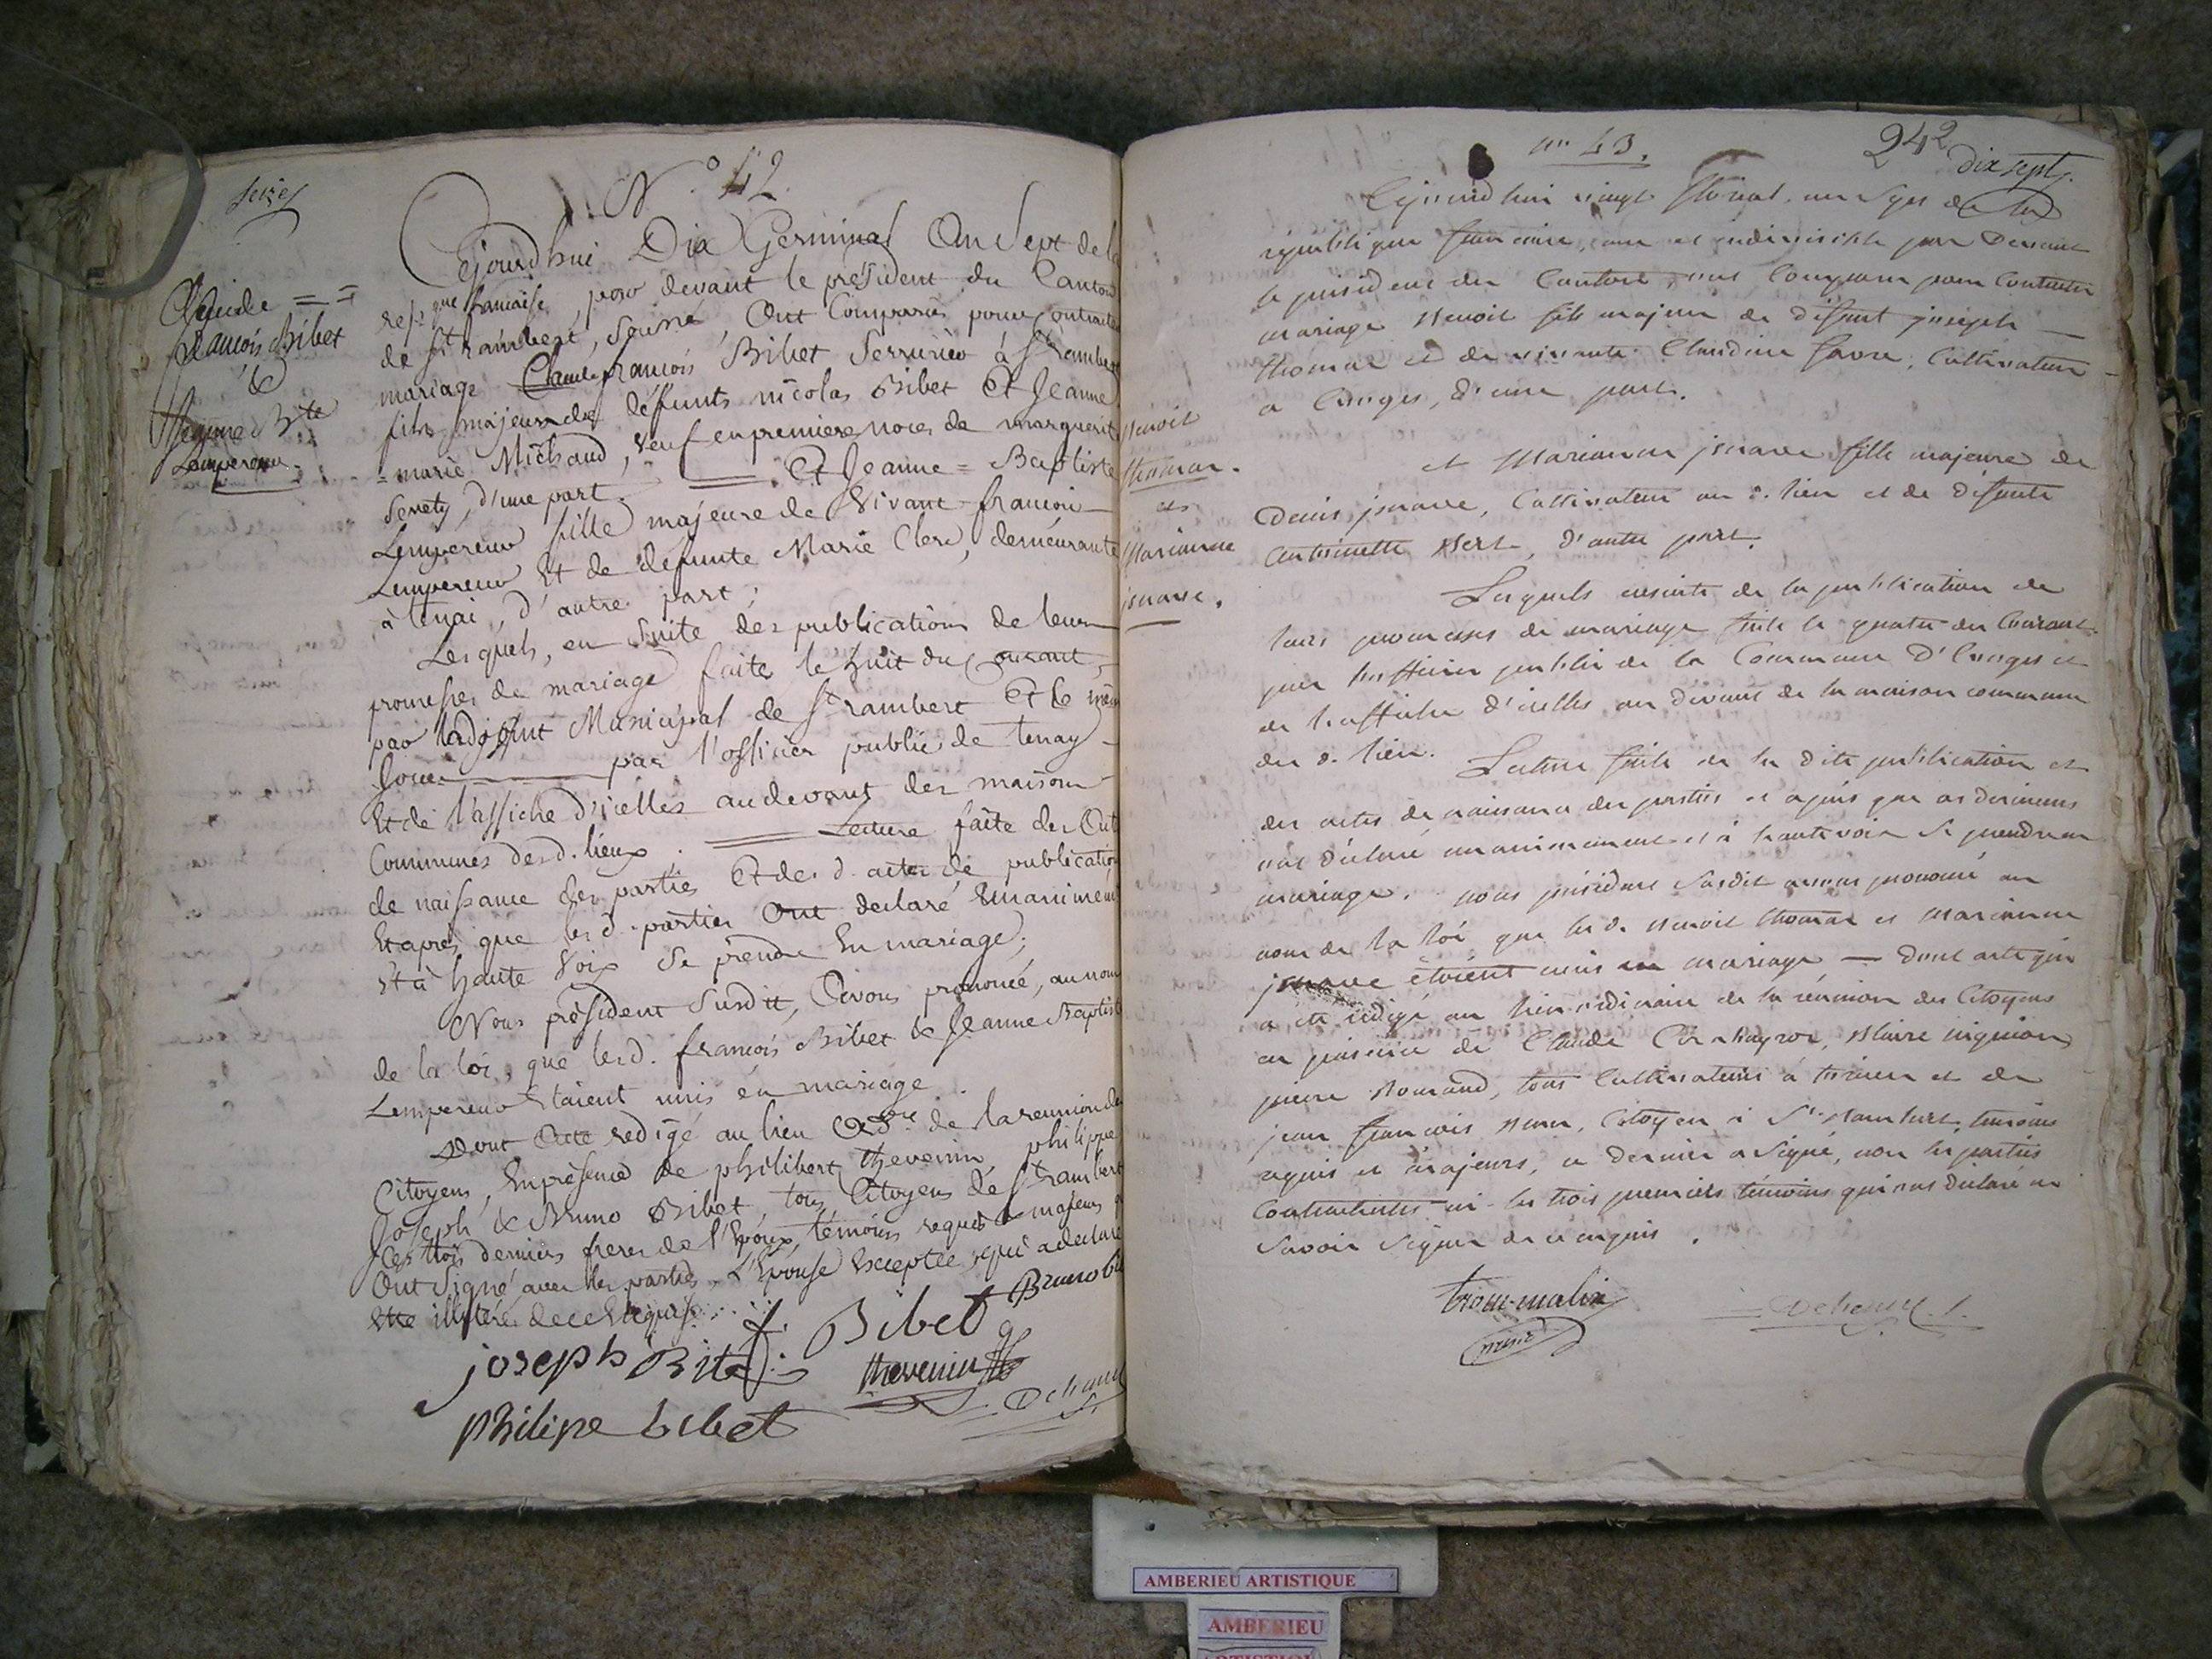 seizes
N.° 42.
Claude ==
francois Bibet
&
Jeanne Bte
Lempereur.
Cejourdhui Dix Germinal An Sept de la
repque francaise, par devant le président du Canton
de St rambert, Soussné, Ont Comparus pour Contracter
mariage Claude francois Bibet Serrurier à St rambert
fils majeur des défunts nicolas Bibet Et Jeanne
=marie Michaud, veuf en premieres noces de marguerite
d'une part. == Et Jeanne = Baptiste
Lempereur fille majeure de Vivant francois
Lempereur Et de défunte Marie Clerc, demeurante
à tenai, d'autre part;
Lesquels, en Suite des publications de leurs
promesses de mariage faites le huit du Courant,
par ladjoint Municipal de St rambert Et le même
Jour par l'officier public de tenay
Et de l'affiche d'icelles au devant des maisons
Communes desd. lieux. == Lecture faite des Actes
de naissance des parties Et des d. actes de publication
Et après que les d. parties Ont declaré Unanimement
Et à haute Voix Se prendre En mariage;
Nous président Susdit, Avons prononcé, au nom
de la loi, que lesd. francois Bibet & Jeanne Baptiste
Lempereur Etaient unis en mariage.
Dont Acte redigé au lieu Ordre de la reunion des
Citoyens, En présence de philibert thevenin, philippe
Joseph & Bruno Bibet, tous Citoyens de St rambert
les trois derniers freres de l'Epoux, témoins requis & majeurs
Ont Signé avec les parties, L'Epouse Exceptée, qui a declaré
Etre illitérée de ce Enquise.
Bruno bi
f. Bibet
joseph Bibet
thevenin
Dehaud
philipe bibet
no 43.
242
dix sept.
Benoit
thomas.
et
Marianne
Cejourd'hui vingt floréal an Sept de la
république française, une et indivisible par devant
le président du Canton, ont Comparu pour Contracter
mariage Benoit fils majeur de défunt joseph
thomas et de vivante Claudine favre, Cultivateur
a d'une part.
et Marianne fille majeure de
Denis, Cultivateur au d. lieu et de défunte
antoinette d'autre part.
Lesquels ensuite de la publication de
leurs promesses de mariage faite le quatre du Courant
par l'officier public de la Commune et
de l'affiche d'icelles au devant de la maison commune
du d. lieu. Lecture faite de la dite publication et
des actes de naissance des parties et après que ces derniers
ont déclaré unanimement et à haute voix Se prendre en
mariage. nous président Susdit avons prononcé au
nom de la loi que les d. Benoit thomas et Marianne
étoient unis en mariage — dont acte qui
a été rédigé au lieu ordinaire de la réunion des Citoyens
en présence de Claude
pierre tous Cultivateurs à et de
jean francois Citoyen à St rambert, temoins
requis et majeurs, ce dernier a Signé, non les parties
Contractantes ni les trois premiers témoins qui ont déclaré ne
Savoir Signer de ce enquis.
Dehaud
AMBERIEU ARTISTIQUE
AMBERIEU
ARTISTIQUE